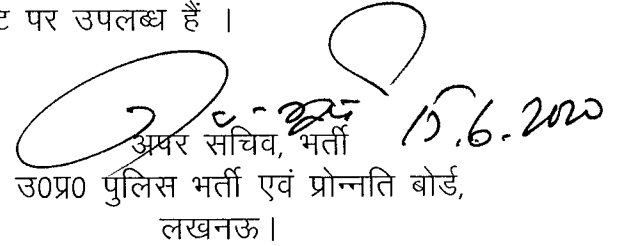 पर उपलब्ध हैं ।
15.6.2020
अपर सचिव, भर्ती
उ0प्र0 पुलिस भर्ती एवं प्रोन्नति बोर्ड,
लखनऊ।